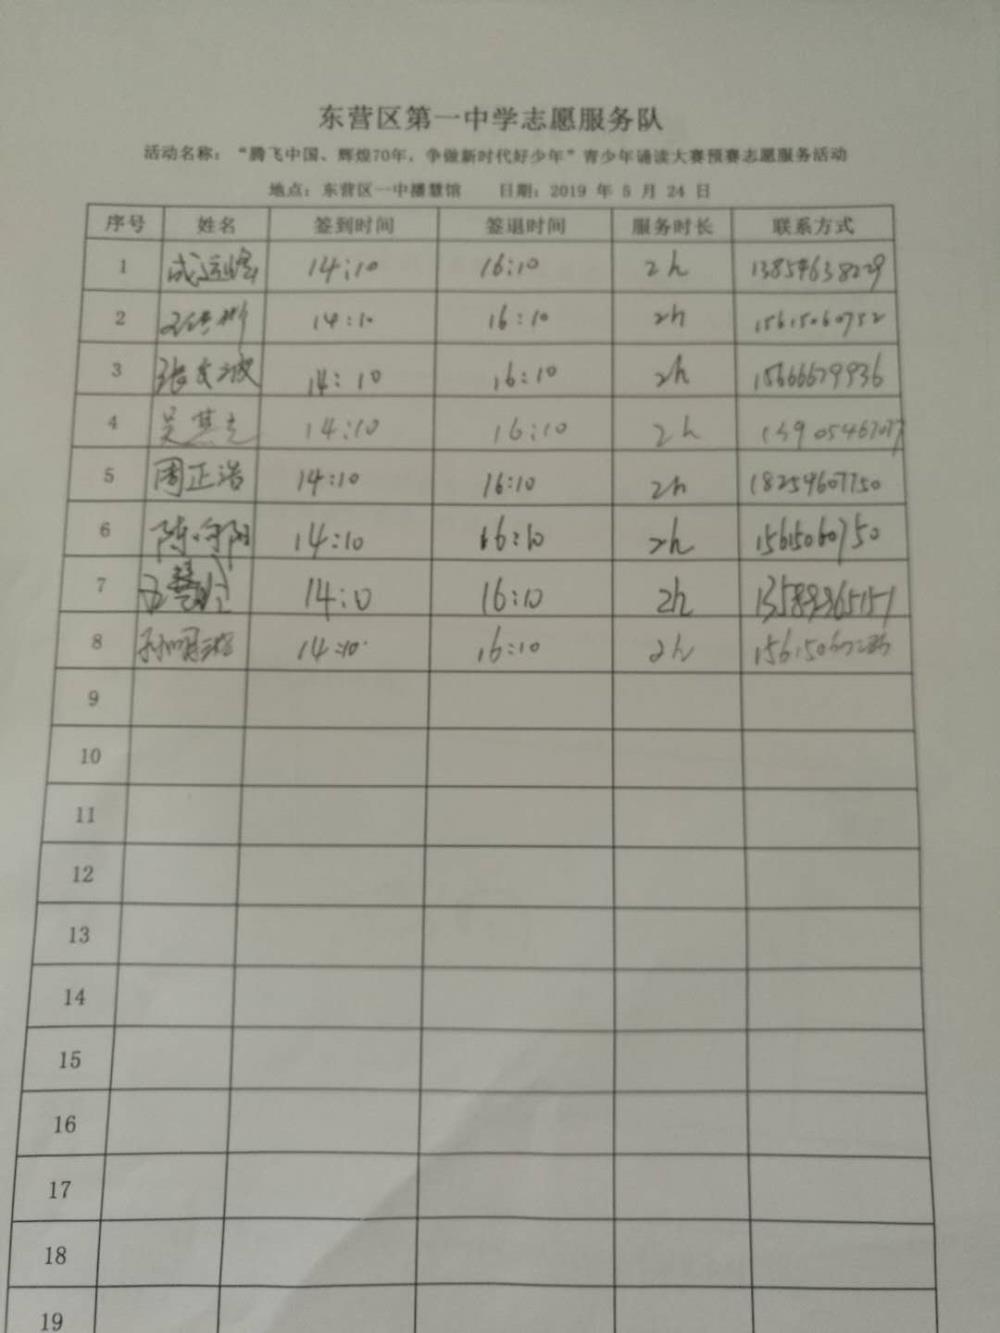 东营区第一中学志愿服务队
活动名称：“腾飞中国、辉煌70年，争做新时代好少年”青少年诵读大赛预赛志愿服务活动
地点：东营区一中德慧馆 日期：2019 年 5 月 24 日
序号 姓名 签到时间 签退时间 服务时长 联系方式
1 14:10 16:10 2h
2 14:10 16:10 2h 15615060752
3 张文波 14:10 16:10 2h 15666679936
4 吴其 14:10 16:10 2h
5 周正浩 14:10 16:10 2h 18254607750
6 陈向阳 14:10 16:10 2h 15615060750
7 14:10 16:10 2h
8 14:10 16:10 2h
9
10
11
12
13
14
15
16
17
18
19